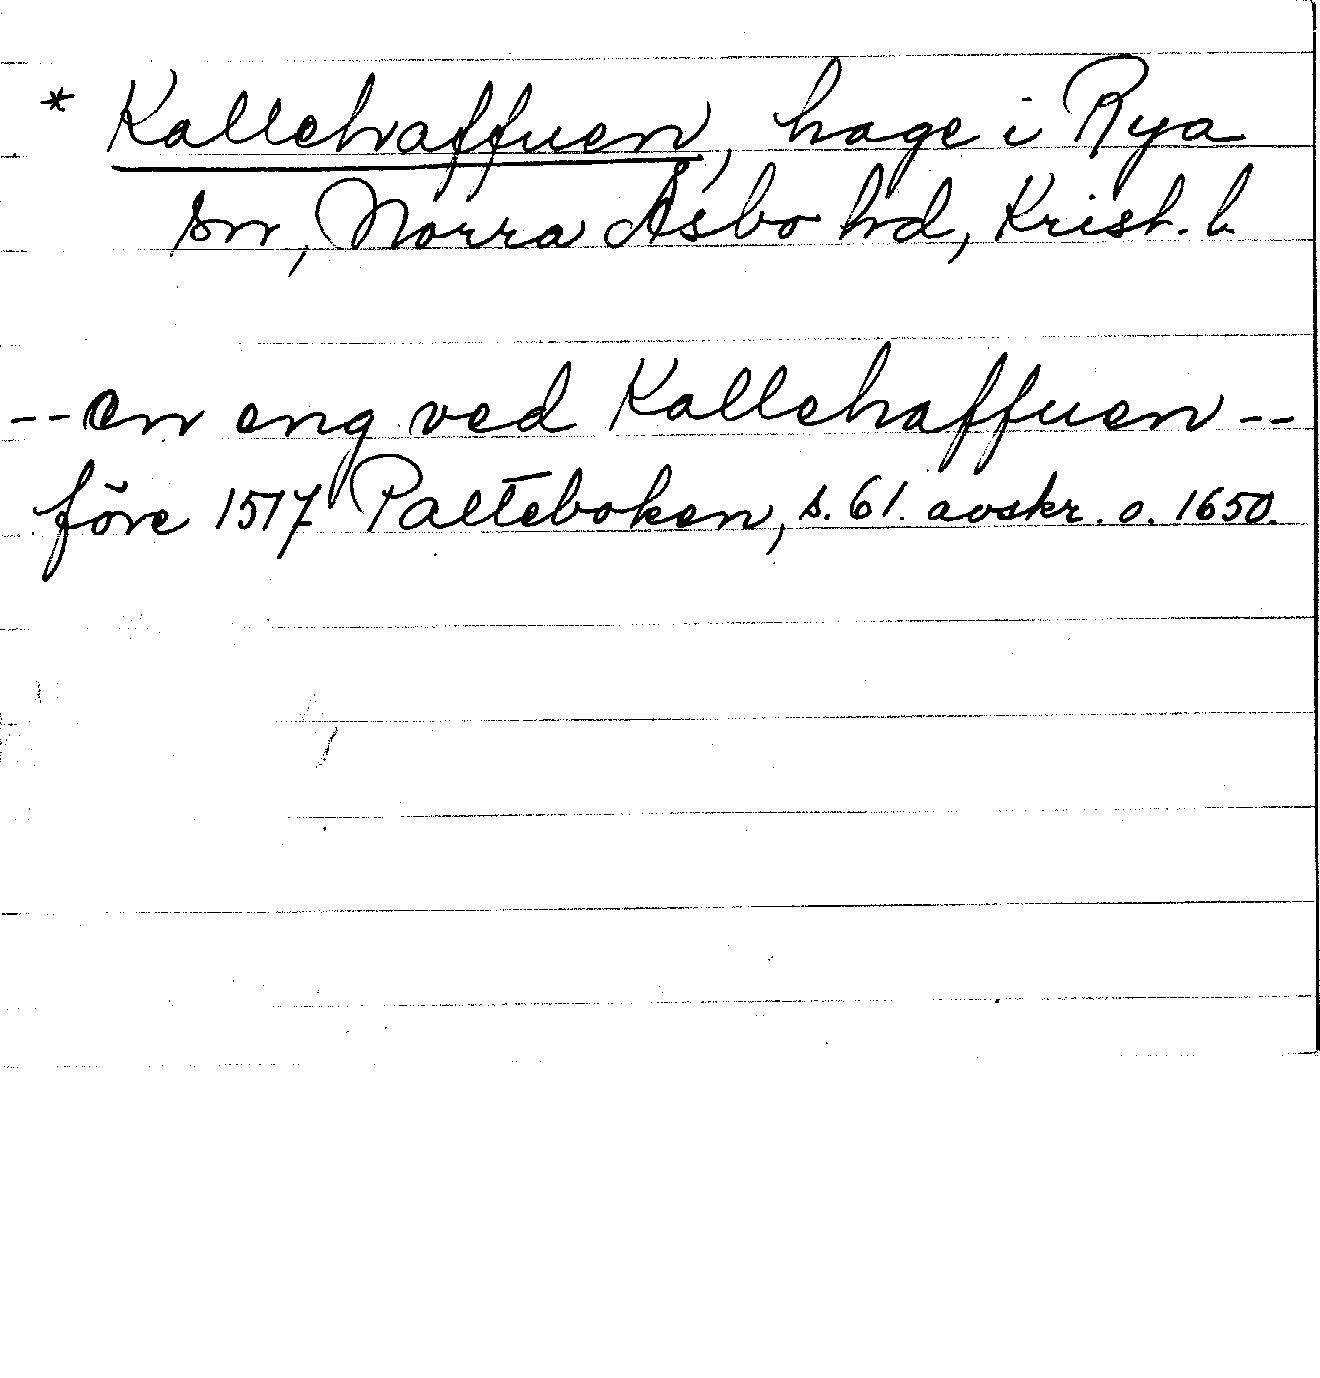 * Kallehaffuen, hage i Rya
sn, Norra Åsbo hd, Krist. l.
-- en eng ved Kallehaffuen --
före 1517 Palteboken, s. 61. avskr. o. 1650.